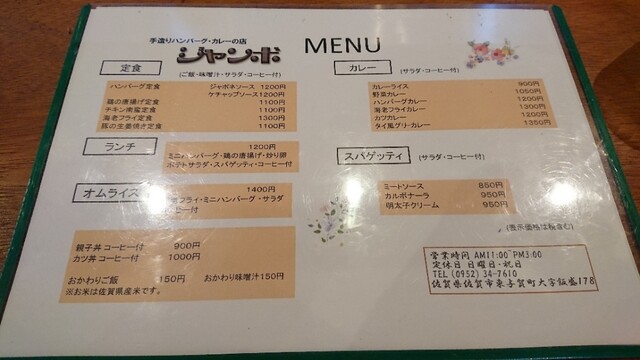 手造りハンバーグ・カレーの店
ジャンボ
MENU
定食
(ご飯・味噌汁・サラダ・コーヒー付)
ハンバーグ定食 ジャポネソース 1200円
ケチャップソース1200円
鶏の唐揚げ定食 1100円
チキン南蛮定食 1100円
海老フライ定食 1300円
豚の生姜焼き定食 1100円
ランチ
1200円
ミニハンバーグ・鶏の唐揚げ・炒り卵
ポテトサラダ・スパゲッティ・コーヒー付
オムライス
1400円
フライ・ミニハンバーグ・サラダ
付
親子丼 コーヒー付 900円
カツ丼 コーヒー付 1000円
おかわりご飯 150円 おかわり味噌汁150円
※お米は佐賀県産米です。
カレー
(サラダ・コーヒー付)
カレーライス 900円
野菜カレー 1050円
ハンバーグカレー 1200円
海老フライカレー 1300円
カツカレー 1200円
タイ風グリーカレー 1350円
スパゲッティ
(サラダ・コーヒー付)
ミートソース 850円
カルボナーラ 950円
明太子クリーム 950円
(表示価格は税含む)
営業時間 AM11:00~PM3:00
定休日 日曜日・祝日
TEL (0952) 34-7610
佐賀県佐賀市東与賀町大字飯盛178